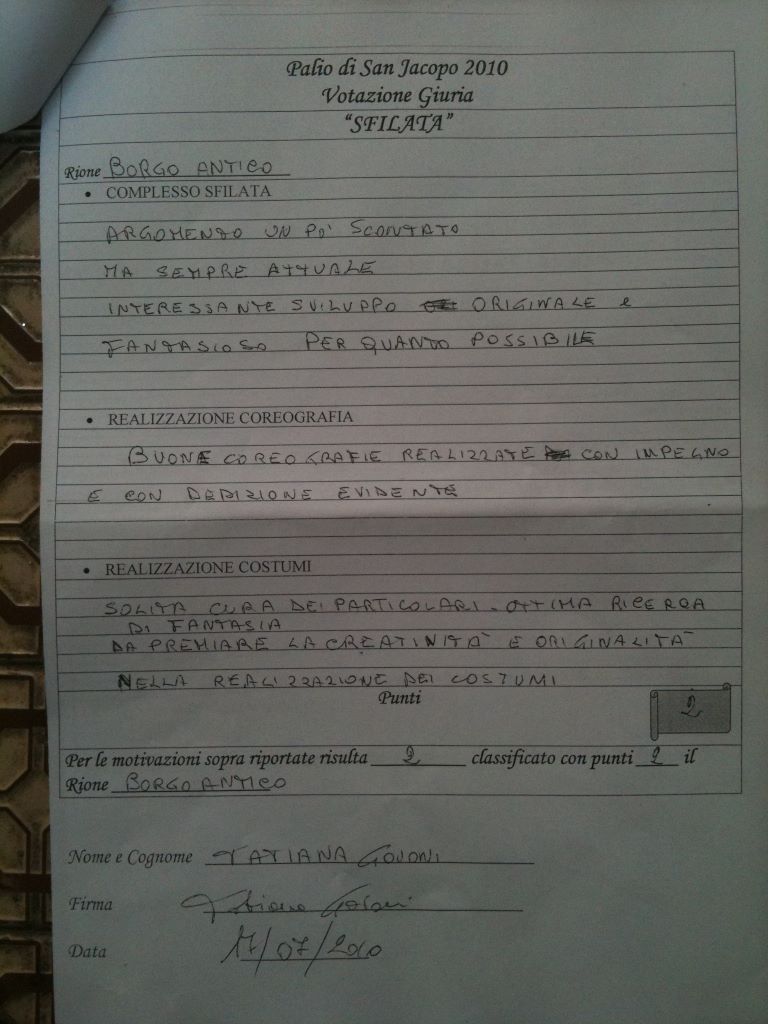 Palio di San Jacopo 2010
Votazione Giuria
“SFILATA”
Rione BORGO ANTICO
• COMPLESSO SFILATA
ARGOMENTO UN PO' SCONTATO
MA SEMPRE ATTUALE
INTERESSANTE SVILUPPO ORIGINALE e
FANTASIOSO PER QUANTO POSSIBILE
• REALIZZAZIONE COREOGRAFIA
BUONE COREOGRAFIE REALIZZATE CON IMPEGNO
E CON DEDIZIONE EVIDENTE
• REALIZZAZIONE COSTUMI
SOLITA CURA DEI PARTICOLARI. OTTIMA RICERCA
DI FANTASIA
DA PREMIARE LA CREATIVITÀ E ORIGINALITÀ
NELLA REALIZZAZIONE DEI COSTUMI
Punti
2
Per le motivazioni sopra riportate risulta 2 classificato con punti 2 il
Rione BORGO ANTICO
Nome e Cognome TATIANA GOVONI
Firma Tatiana Govoni
Data 17/07/2010